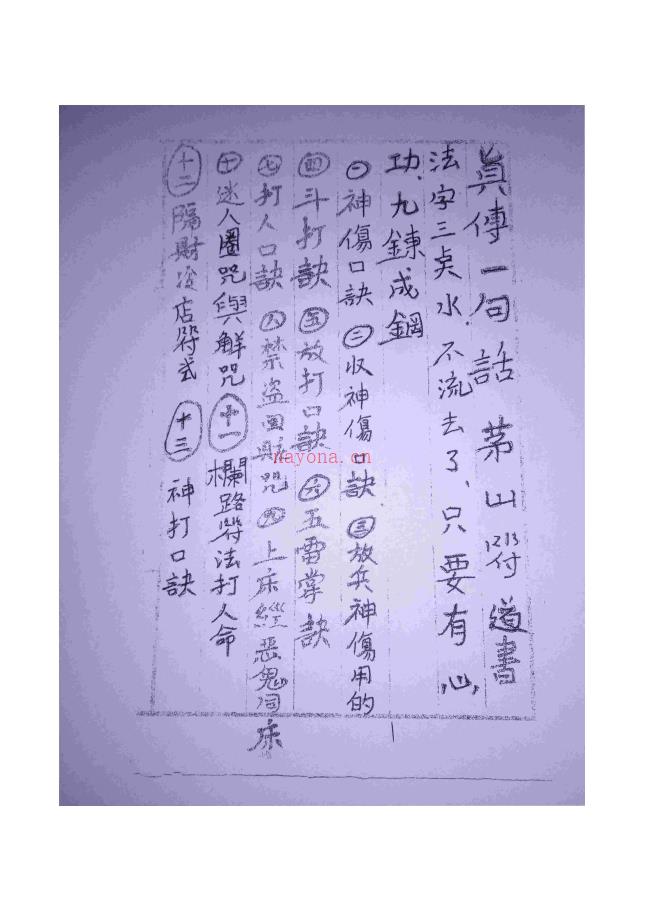 眞傳一句話 茅山符 道書
法字三点水、不流去了、只要有心
功、九鍊成鋼
㊀神傷口訣 ㊁收神傷口訣 ㊂放兵神傷用的
㊃斗打訣 ㊄放打口訣 ㊅五雷掌訣
㊆打人口訣 ㊇禁盜回財咒 ㊈上床經惡鬼同床
㊉迷人圈咒與解咒 十一 欄路符法打人命
十二 隔財 店符式 十三 神打口訣
nayona.cn